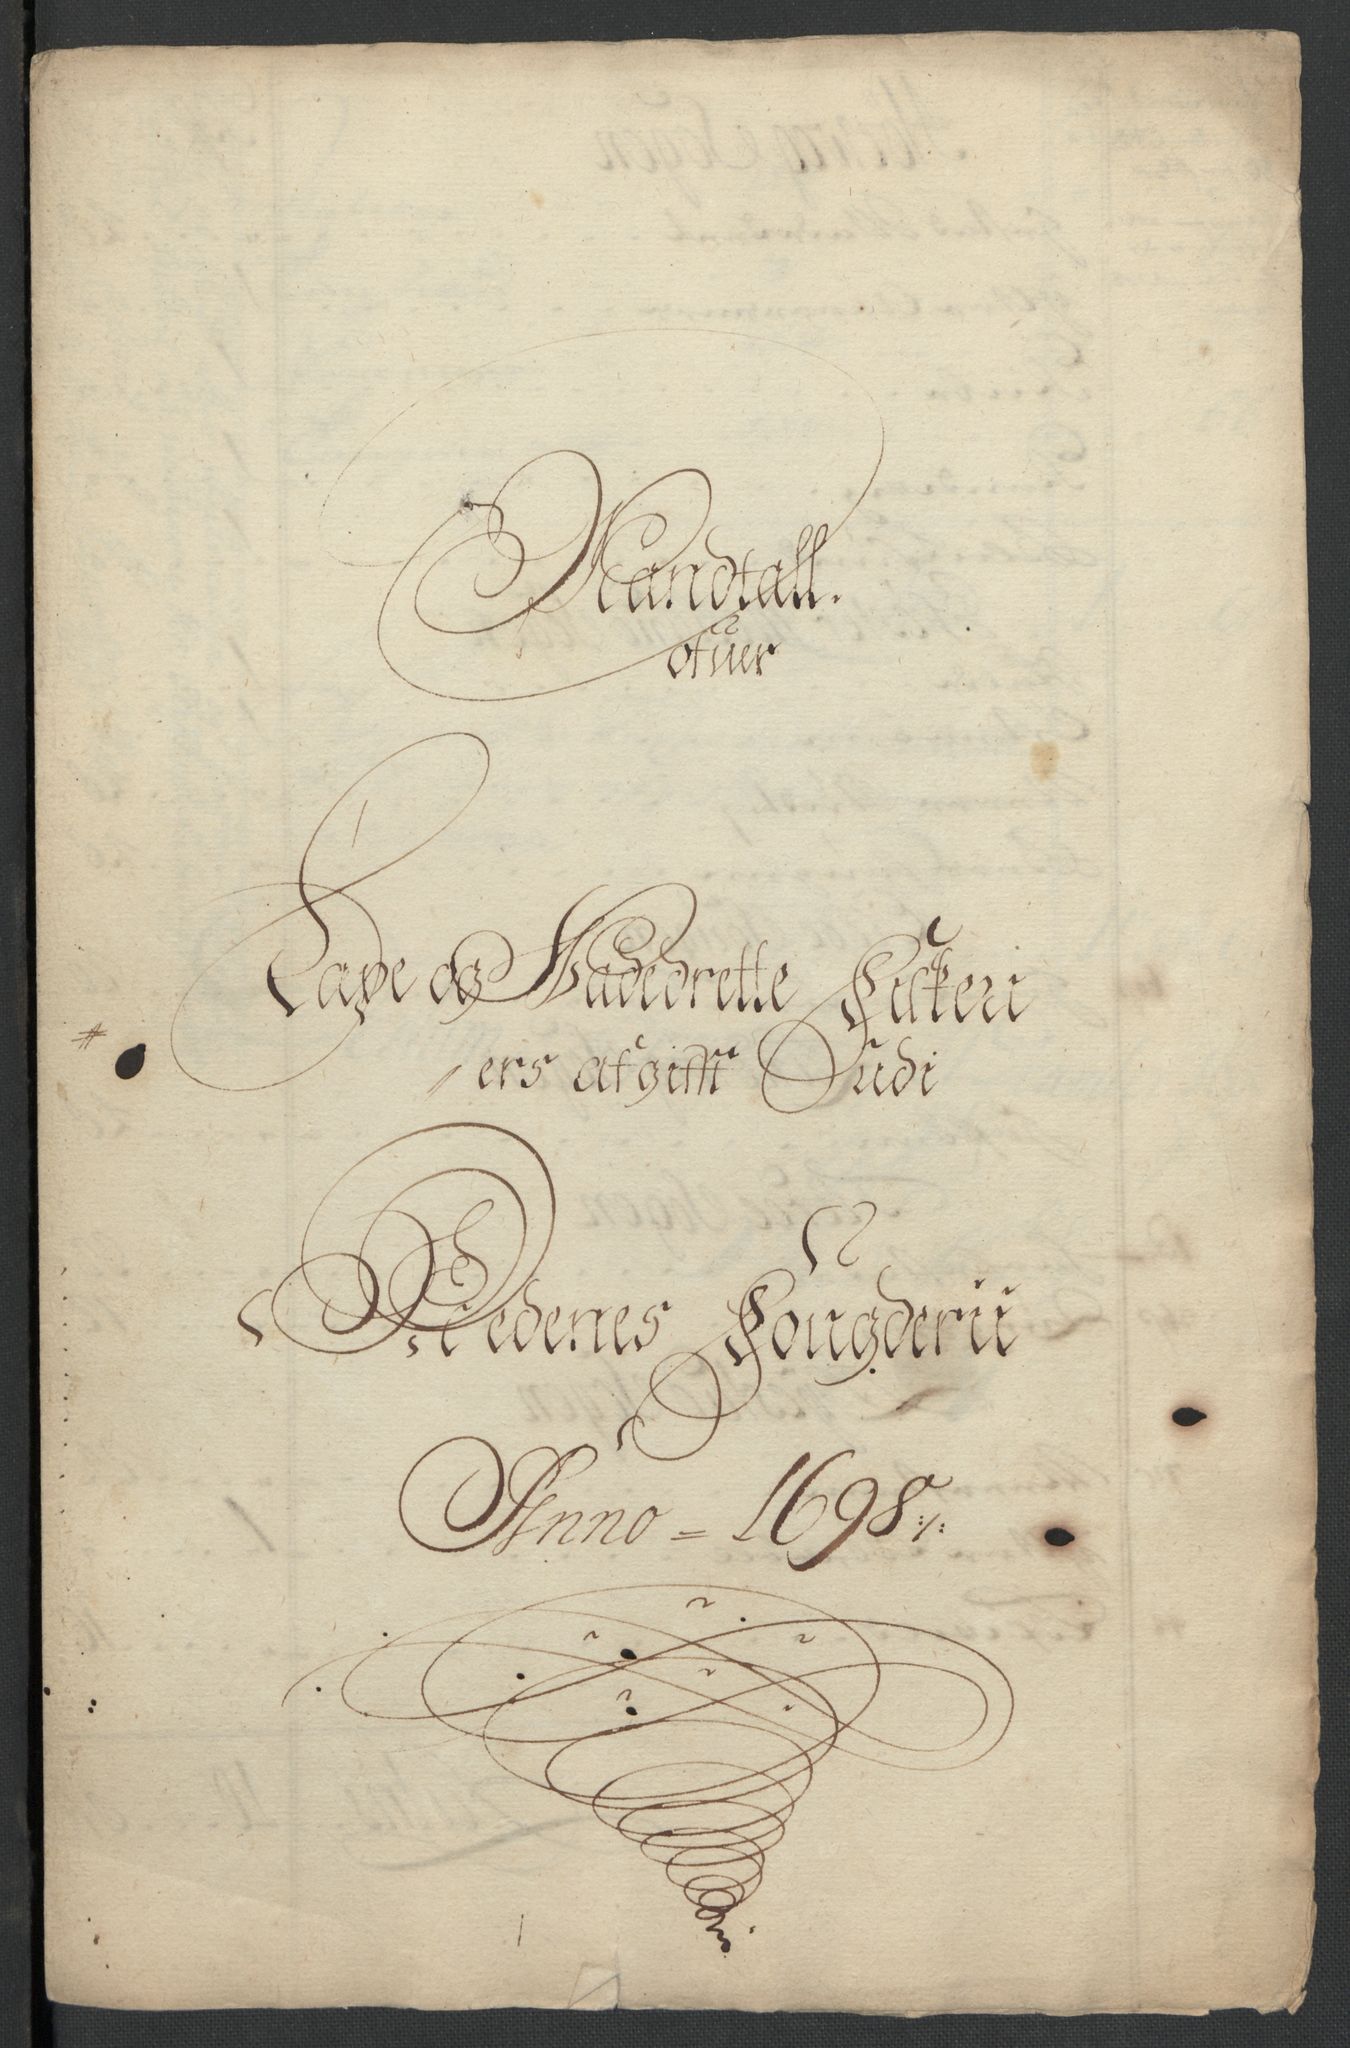 Mandtall.
ofuer
Laxe og Wadedrette Fiskeri
ers afgifft Udi
Nedenes Fougderii
Anno = 1698 ./.